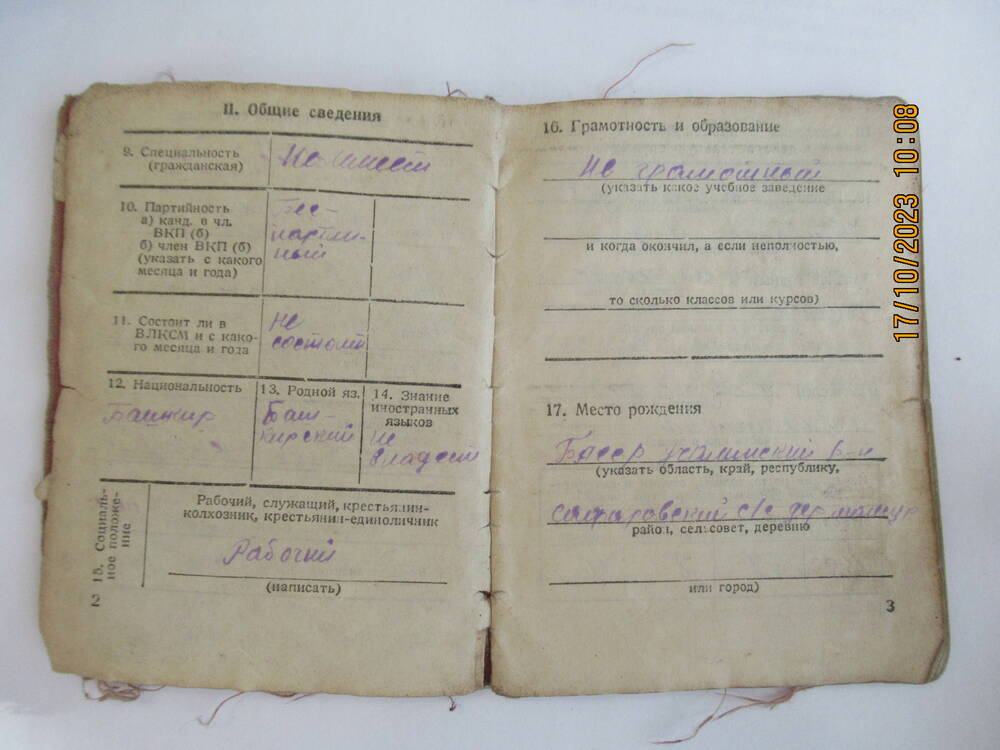 II. Общие сведения
9. Специальность
(гражданская)
Не имеет
10. Партийность
а) канд. в чл.
ВКП (б)
б) член ВКП (б)
(указать с какого
месяца и года)
Бес-
партий-
ный
11. Состоит ли в
ВЛКСМ и с како-
го месяца и года
Не
состоит
12. Национальность
Башкир
13. Родной яз.
Баш-
кирский
14. Знание
иностранных
языков
Не
владеет
15. Социаль-
ное положе-
ние
Рабочий, служащий, крестьянин-
колхозник, крестьянин-единоличник
Рабочий
(написать)
2
16. Грамотность и образование
Не грамотный
(указать какое учебное заведение
и когда окончил, а если неполностью,
то сколько классов или курсов)
17. Место рождения
(указать область, край, республику,
с/с
район, сельсовет, деревню
или город)
3
17/10/2023 10:08